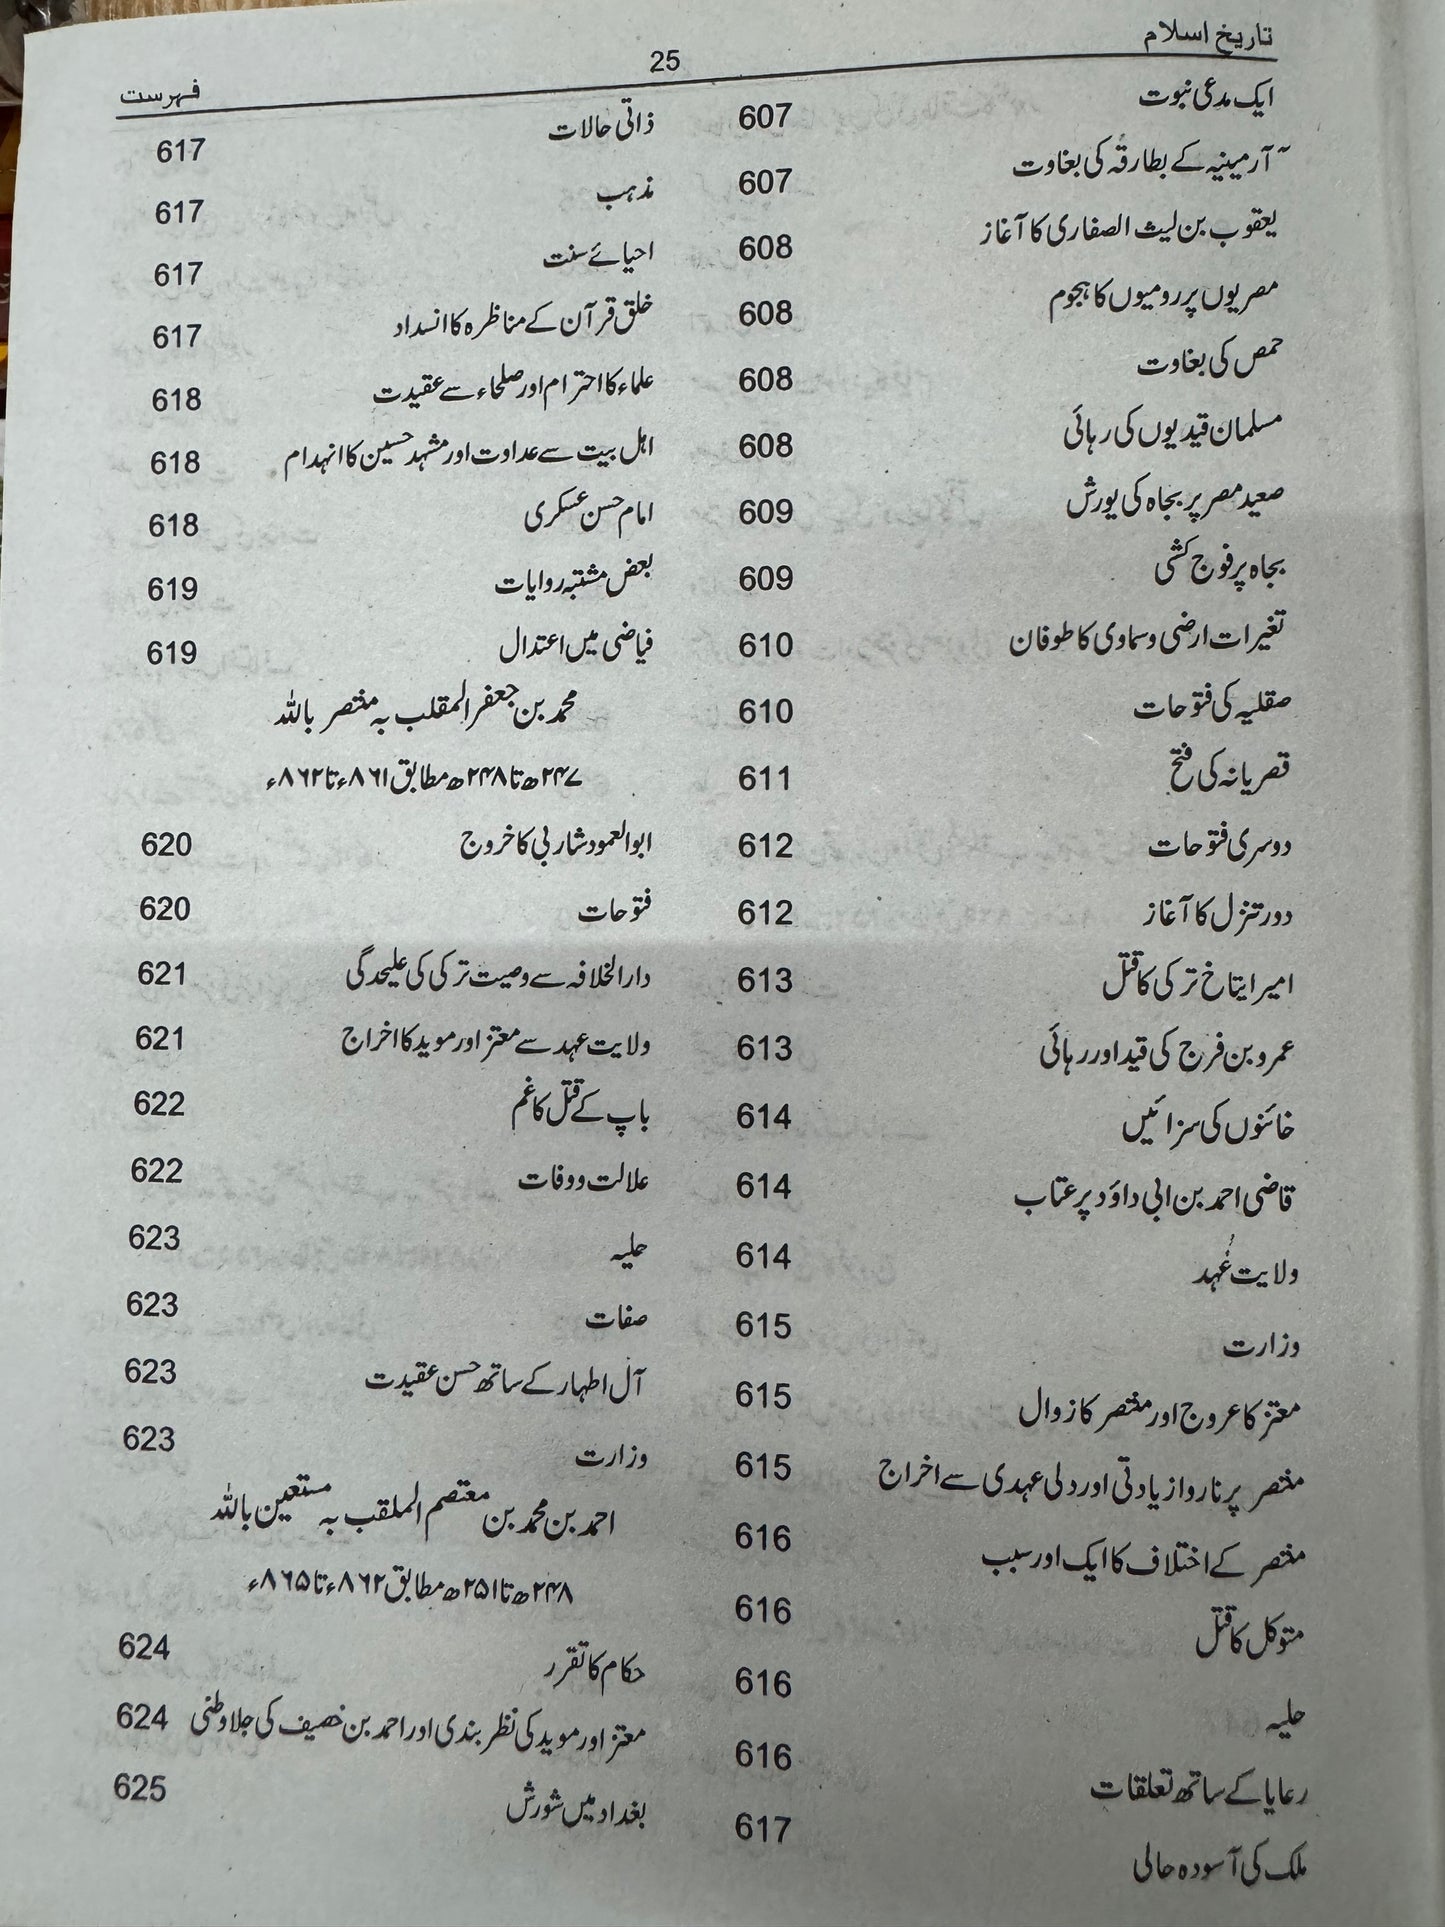 تاریخ اسلام
25
فہرست
ایک مدعی نبوت 607
آرمینیہ کے بطارقہ کی بغاوت 607
یعقوب بن لیث الصفاری کا آغاز 608
مصریوں پر رومیوں کا ہجوم 608
حمص کی بغاوت 608
مسلمان قیدیوں کی رہائی 608
صعید مصر پر بجاہ کی یورش 609
بجاہ پر فوج کشی 609
تغیرات ارضی وسماوی کا طوفان 610
صقلیہ کی فتوحات 610
قصریانہ کی فتح 611
دوسری فتوحات 612
دور تنزل کا آغاز 612
امیر ایتاخ ترکی کا قتل 613
عمرو بن فرج کی قید اور رہائی 613
خائنوں کی سزائیں 614
قاضی احمد بن ابی داؤد پر عتاب 614
ولایت عہد 614
وزارت 615
معتز کا عروج اور منتصر کا زوال 615
منتصر پر ناروا زیادتی اور دلی عہدی سے اخراج 615
منتصر کے اختلاف کا ایک اور سبب 616
متوکل کا قتل 616
حلیہ 616
رعایا کے ساتھ تعلقات 616
ملک کی آسودہ حالی 617
ذاتی حالات 617
مذہب 617
احیائے سنت 617
خلق قرآن کے مناظرہ کا انسداد 617
علماء کا احترام اور صلحاء سے عقیدت 618
اہل بیت سے عداوت اور مشہد حسین کا انہدام 618
امام حسن عسکری 618
بعض مشتبہ روایات 619
فیاضی میں اعتدال 619
محمد بن جعفر المقلب بہ منتصر باللہ
۲۴۷ھ تا ۲۴۸ھ مطابق ۸۶۱ء تا ۸۶۲ء
ابوالعمود شاربی کا خروج 620
فتوحات 620
دارالخلافہ سے وصیت ترکی کی علیحدگی 621
ولایت عہد سے معتز اور موید کا اخراج 621
باپ کے قتل کا غم 622
علالت ووفات 622
حلیہ 623
صفات 623
آل اطہار کے ساتھ حسن عقیدت 623
وزارت 623
احمد بن محمد بن معتصم الملقب بہ مستعین باللہ
۲۴۸ھ تا ۲۵۱ھ مطابق ۸۶۲ء تا ۸۶۵ء
حکام کا تقرر 624
معتز اور موید کی نظر بندی اور احمد بن خصیف کی جلاوطنی 624
بغداد میں شورش 625